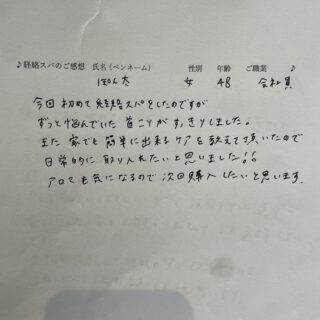 ♪経絡スパのご感想 氏名(ペンネーム) 性別 年齢 ご職業 ♪
ぽん太 女 48 会社員
今回初めて経絡スパをしたのですが
ずっと悩んでいた首こりがすっきりしました。
また家でも簡単に出来るケアを教えて頂いたので
日常的に取り入れたいと思いました!!
アロマも気になるので次回購入したいと思います。